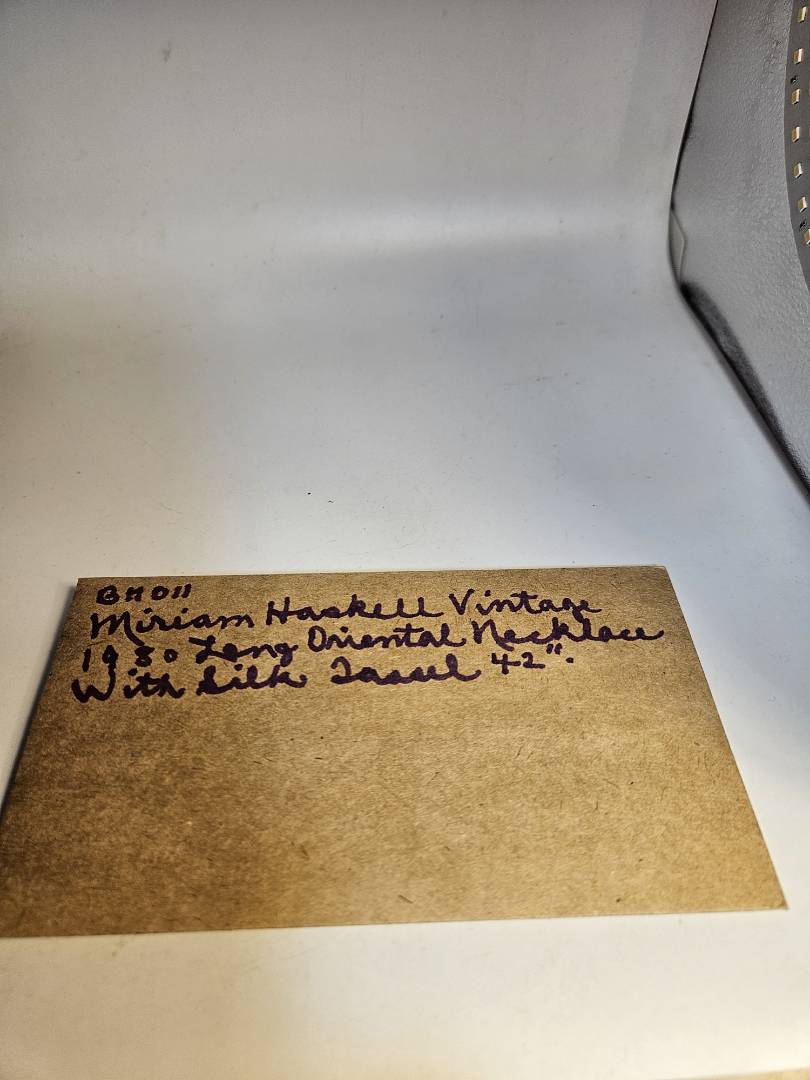 BH011
Miriam Haskell Vintage
1980 Long Oriental Necklace
With Silk Tassel 42".